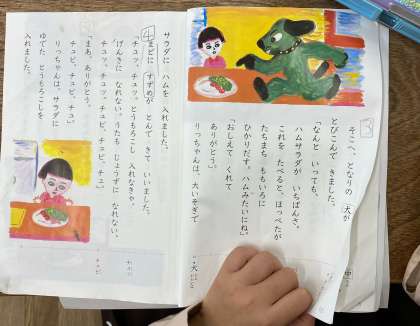 3
そこへ、となりの 犬が
とびこんで きました。
「なんと いっても、
ハムサラダが いちばんさ。
これを たべると、ほっぺたが
たちまち ももいろに
ひかりだす。ハムみたいにね。」
「おしえて くれて
ありがとう。」
りっちゃんは、大いそぎで
サラダに ハムを 入れました。
4
まどに すずめが とんで きて いいました。
「チュッ、チュッ、とうもろこし 入れなきゃ、
げんきに なれない。うたも じょうずに なれない。
チュッ、チュッ、チュピ、チュピ、チュ。」
「まあ、ありがとう。
チュピ、チュピ、チュ。」
りっちゃんは、サラダに
ゆでた とうもろこしを
入れました。
犬